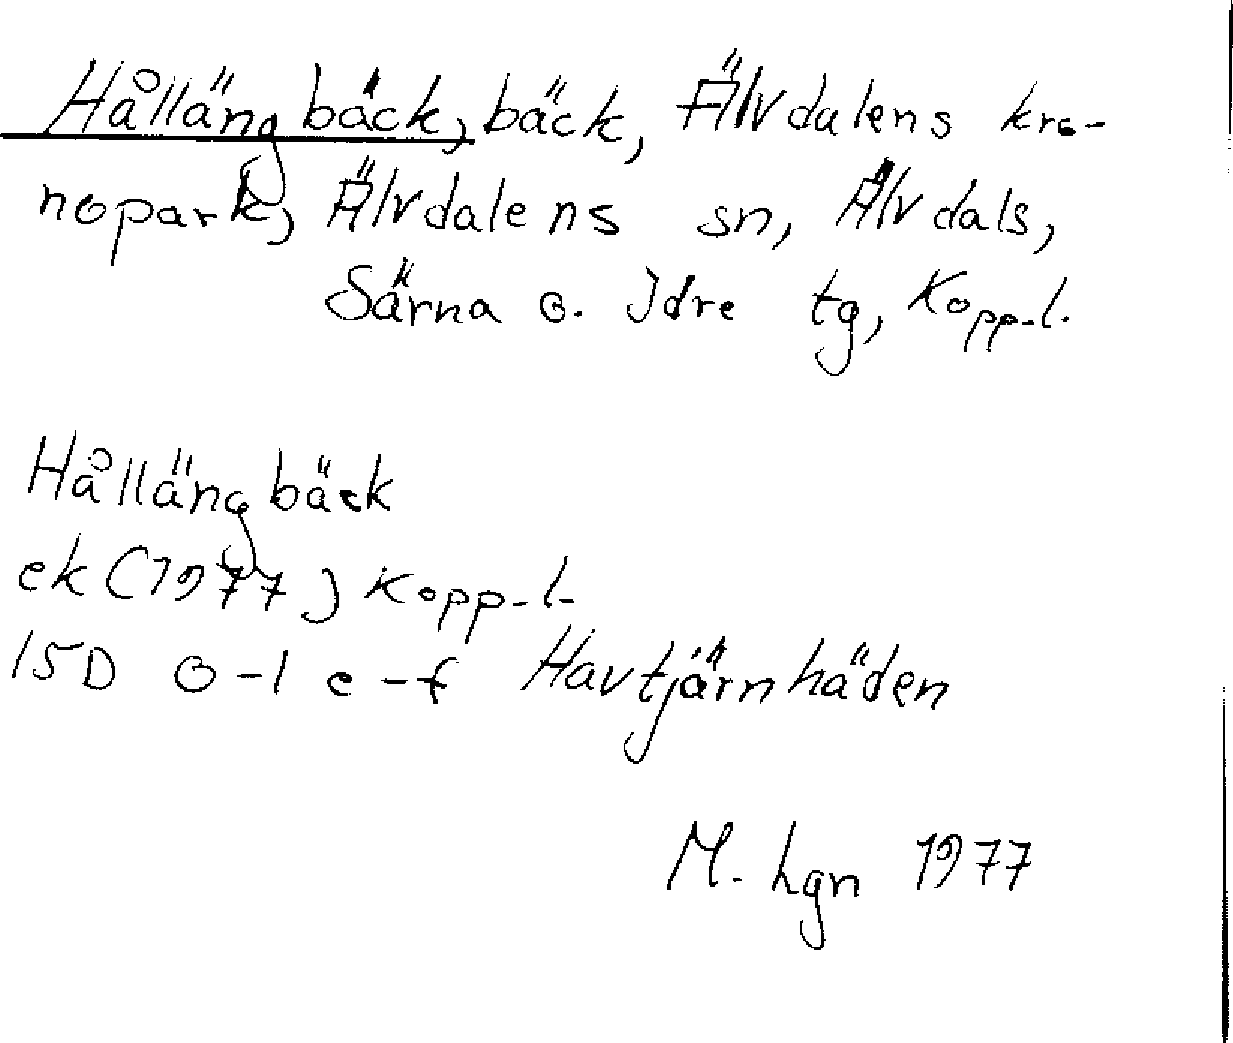 Hålläng bäck, bäck, Älvdalens kro-
nopark, Älvdalens sn, Älvdals,
Särna o. Idre tg, Kopp.l.
Hålläng bäck
ek (1977) Kopp.l.
15D 0-1 e-f Havtjärnhäden
M. Lgn 1977